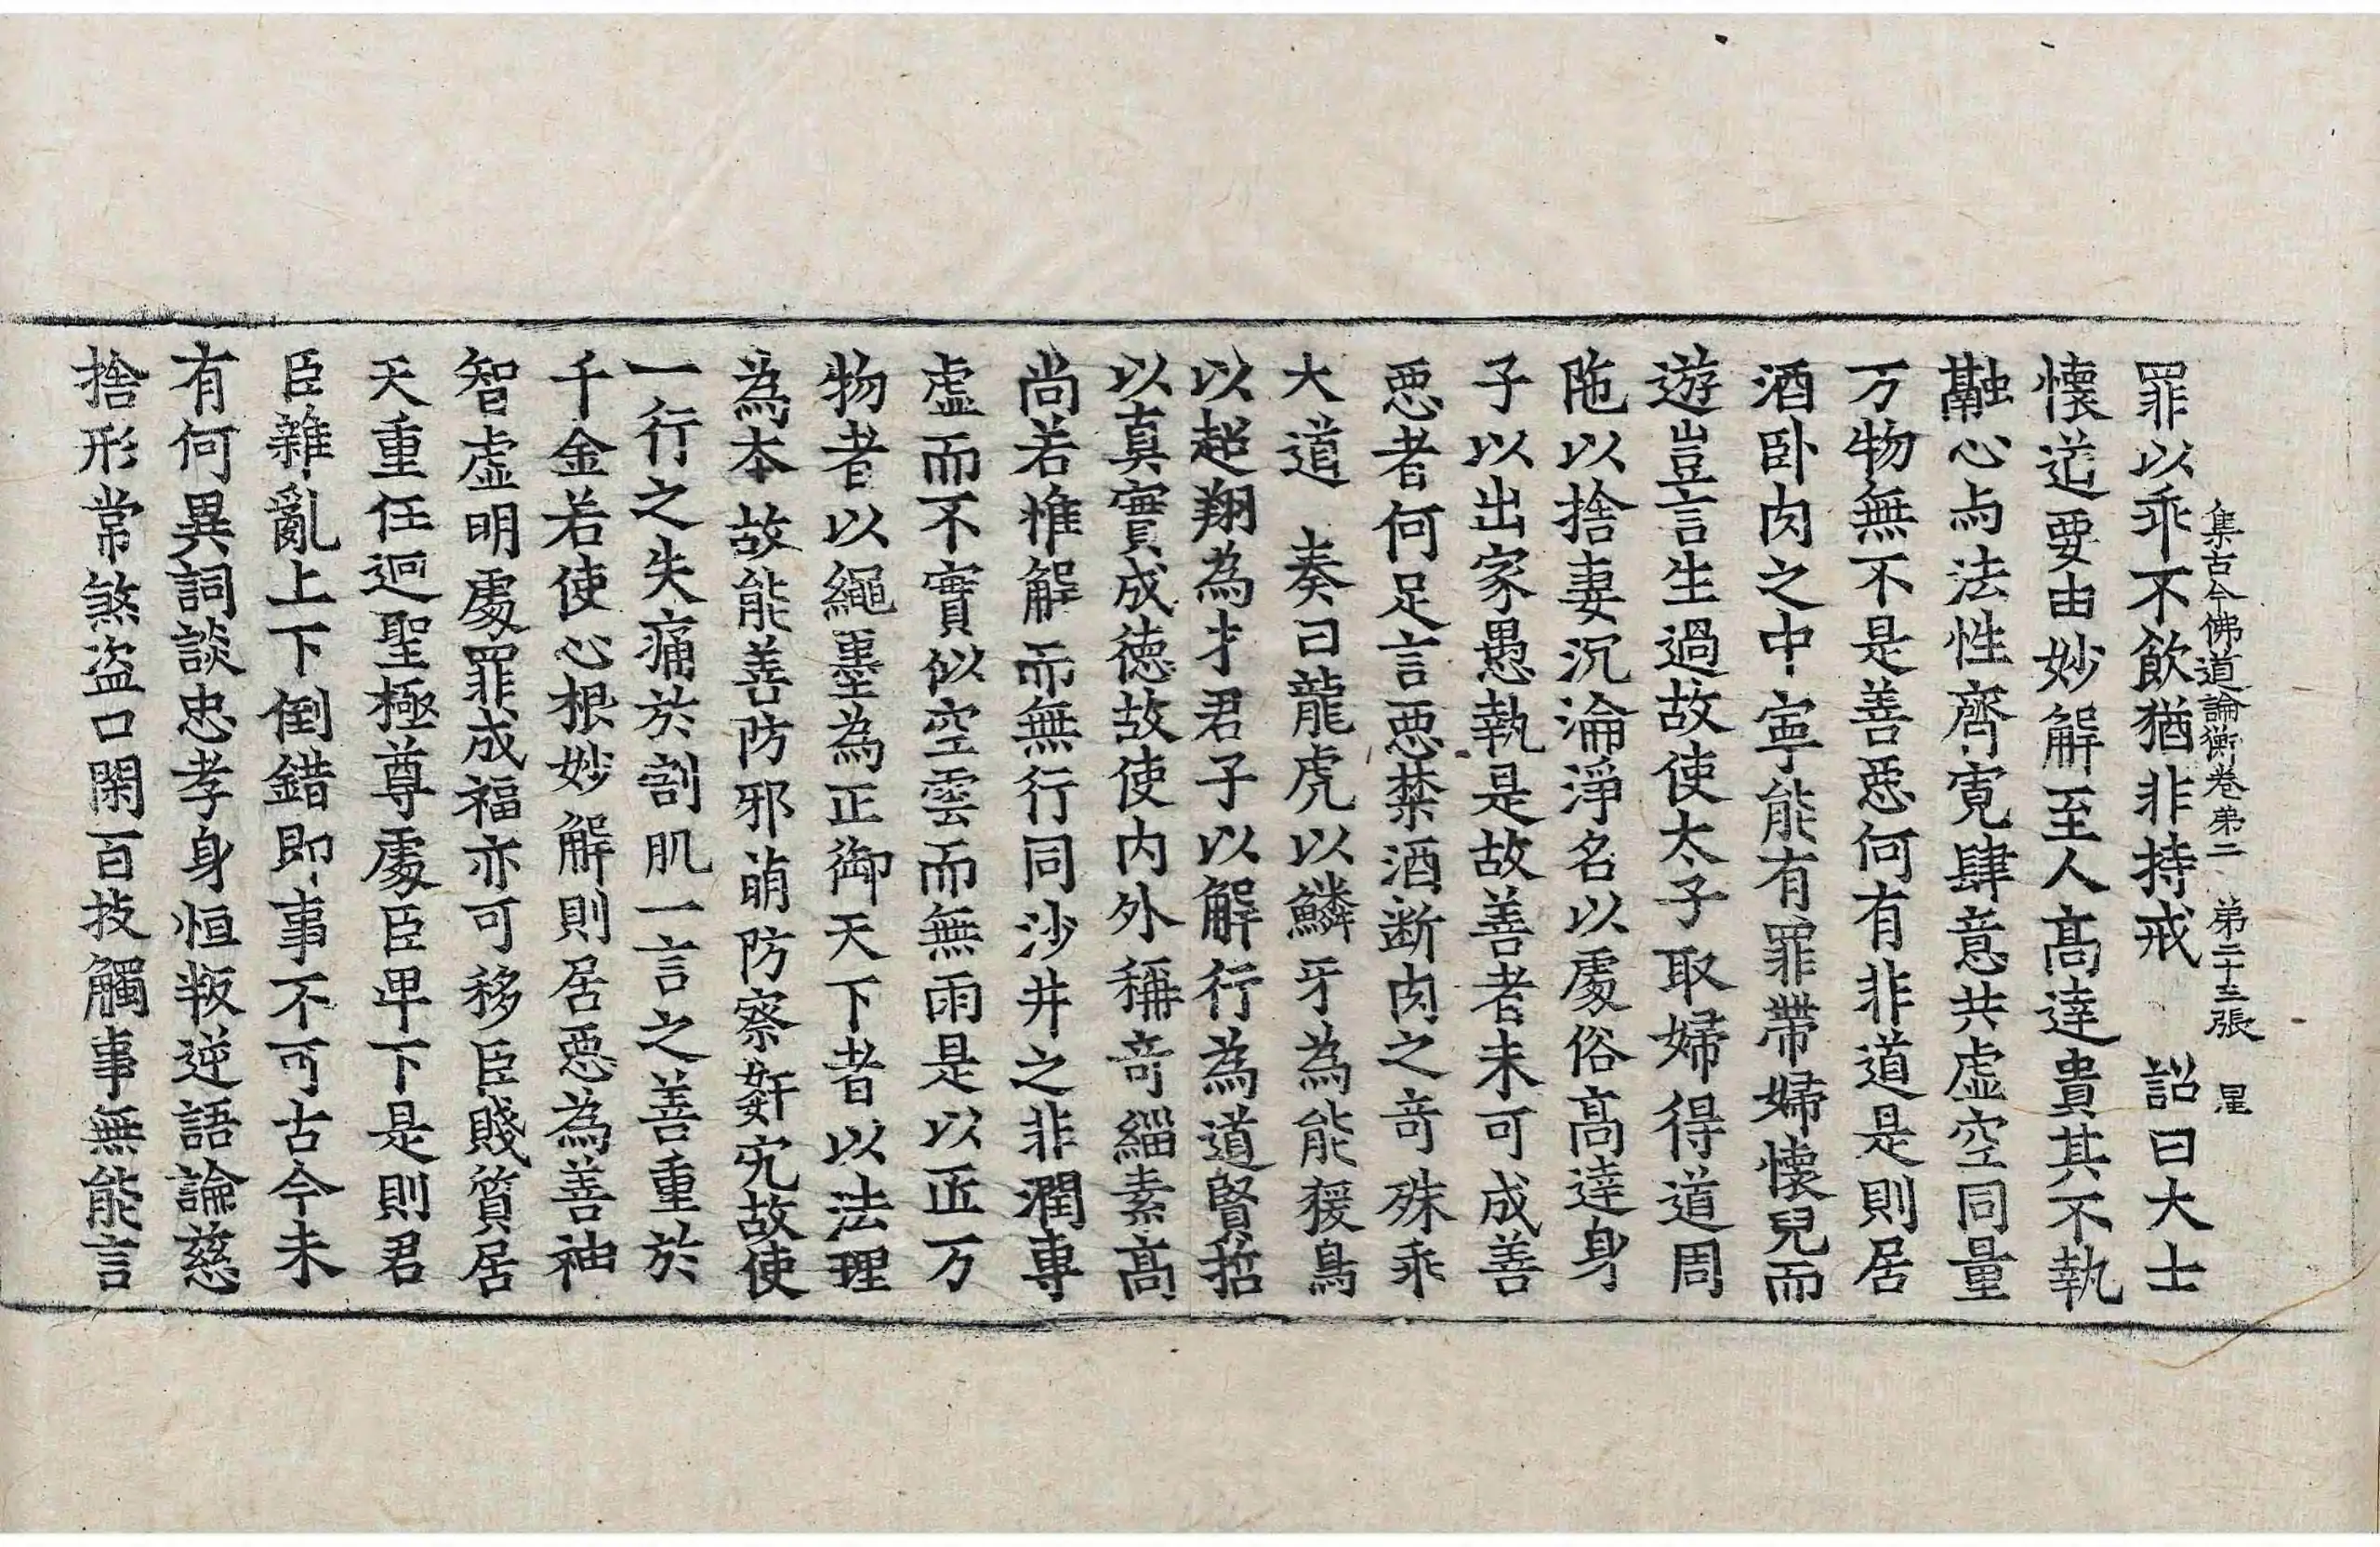 集古今佛道論衡卷第二　第二十三張　星
罪以乖不飲猶非持戒　詔曰大士
懷道要由妙解至人高達貴其不執
融心与法性齊寬肆意共虛空同量
万物無不是善惡何有非道是則居
酒卧肉之中寧能有罪帶婦懷兒而
遊豈言生過故使太子取婦得道周
陁以捨妻沉淪淨名以處俗高達身
子以出家愚執是故善者未可成善
惡者何足言惡禁酒断肉之奇殊乖
大道　奏曰龍虎以鱗牙為能猨鳥
以超翔為才君子以解行為道賢哲
以真實成德故使内外稱奇緇素高
尚若惟解而無行同沙井之非潤專
虛而不實似空雲而無雨是以匠万
物者以繩墨為正御天下者以法理
為本故能善防邪萌防察姧宄故使
一行之失痛於割肌一言之善重於
千金若使心根妙解則居惡為善神
智虛明處罪成福亦可移臣賤質居
天重任迴聖極尊處臣卑下是則君
臣雜亂上下倒錯即事不可古今未
有何異詞談忠孝身恒叛逆語論慈
捨形常煞盜口閑百技觸事無能言